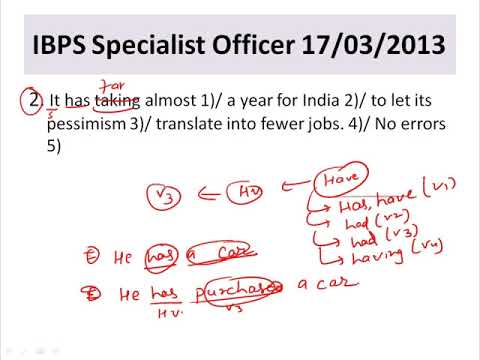 IBPS Specialist Officer 17/03/2013
2. It has taking almost 1)/ a year for India 2)/ to let its
pessimism 3)/ translate into fewer jobs. 4)/ No errors
5)
V3 ← HV ← Have
Has, have (V1)
had (V2)
had (V3)
having (V4)
He has a car
He has purchased a car
HV. V3